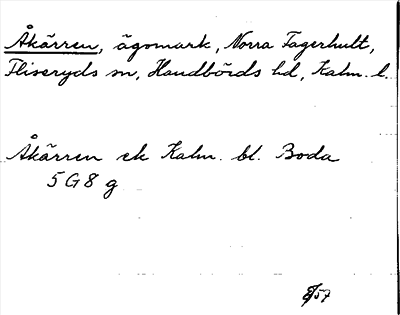 Åkärren, ägomark, Norra Fagerhult,
Fliseryds sn, Handbörds hd, Kalm. l.
Åkärren ek Kalm. bl. Boda
5 G 8 g
/57